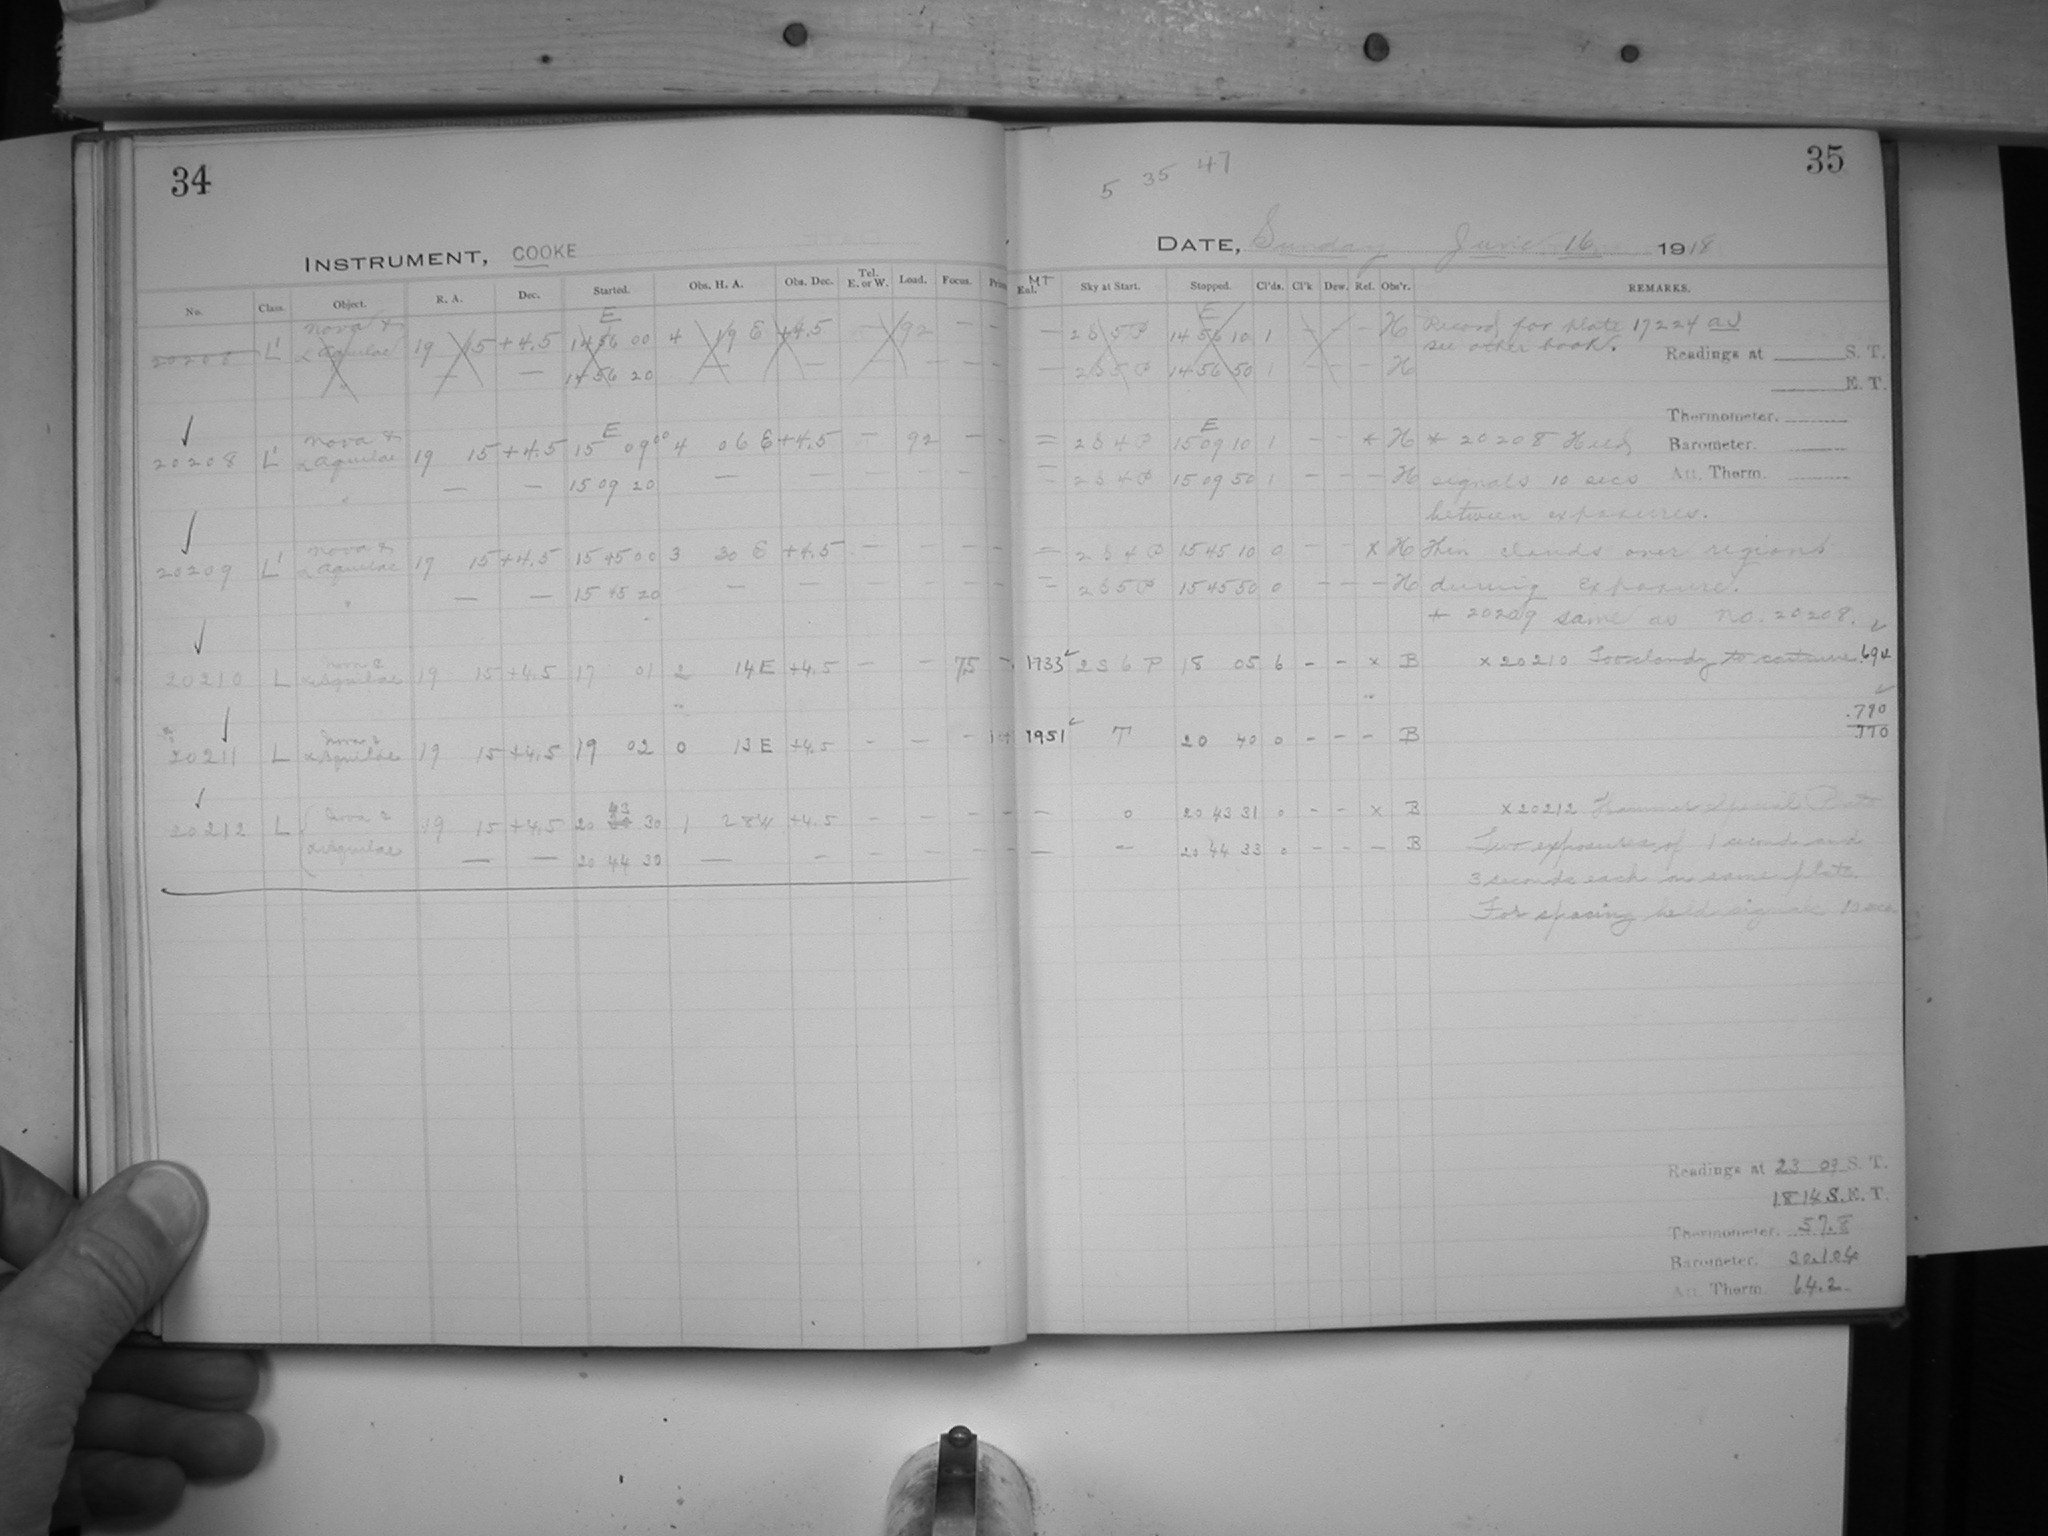 34
INSTRUMENT, COOKE
No. Class. Object. R. A. Dec. Started. Obs. H. A. Obs. Dec. Tel. E. or W. Load. Focus.
20208 L' Nova & α Aquilae 19 15 +4.5 E 14 56 00 4 19 E +4.5 – 92 – –
" — — 14 56 20 — — – –
20208 L' Nova & α Aquilae 19 15 +4.5 E 15 09 00 4 06 E +4.5 – 92 – –
" — — 15 09 20 — — – – – –
20209 L' Nova & α Aquilae 19 15 +4.5 15 45 00 3 30 E +4.5 – – – –
" — — 15 45 20 — — – – – –
20210 L Nova & α Aquilae 19 15 +4.5 17 01 2 14 E +4.5 – – 75 –
20211 L Nova & α Aquilae 19 15 +4.5 19 02 0 13 E +4.5 – — –
20212 L Nova & α Aquilae 19 15 +4.5 20 43 30 1 28 W +4.5 – – – –
— — 20 44 30 — – – – – –
35
5 35 47
DATE, Sunday June 16 1918
MT
Eal. Sky at Start. Stopped. Cl'ds. Cl'k Dew. Ref. Obs'r. REMARKS.
— 2S5P E 14 56 10 1 – – – H Record for plate 17224 as
see other book.
— 2S5P 14 56 50 1 – – – H
Readings at S. T.
E. T.
Thermometer.
Barometer.
Att. Therm.
— 2S4P E 15 09 10 1 – – * H * 20208 Held
— 2S4P 15 09 50 1 – – – H signals 10 secs
between exposures.
— 2S4P 15 45 10 0 – – x H Thin clouds over regions
— 2S5P 15 45 50 0 – – – H during exposure.
+ 20209 same as No. 20208.
1733 2S6P 18 05 6 – – x B x 20210 Too cloudy to continue .694
.790
.770
1951 T 20 40 0 – – – B
— 0 20 43 31 0 – – x B x 20212 Hammer Special Plate
— – 20 44 33 0 – – – B Two exposures of 1 second and
3 seconds each on same plate.
For spacing held signals 10 secs.
Readings at 23 03 S. T.
18 14 S.E. T.
Thermometer. 57.8
Barometer. 30.104
Att. Therm. 64.2